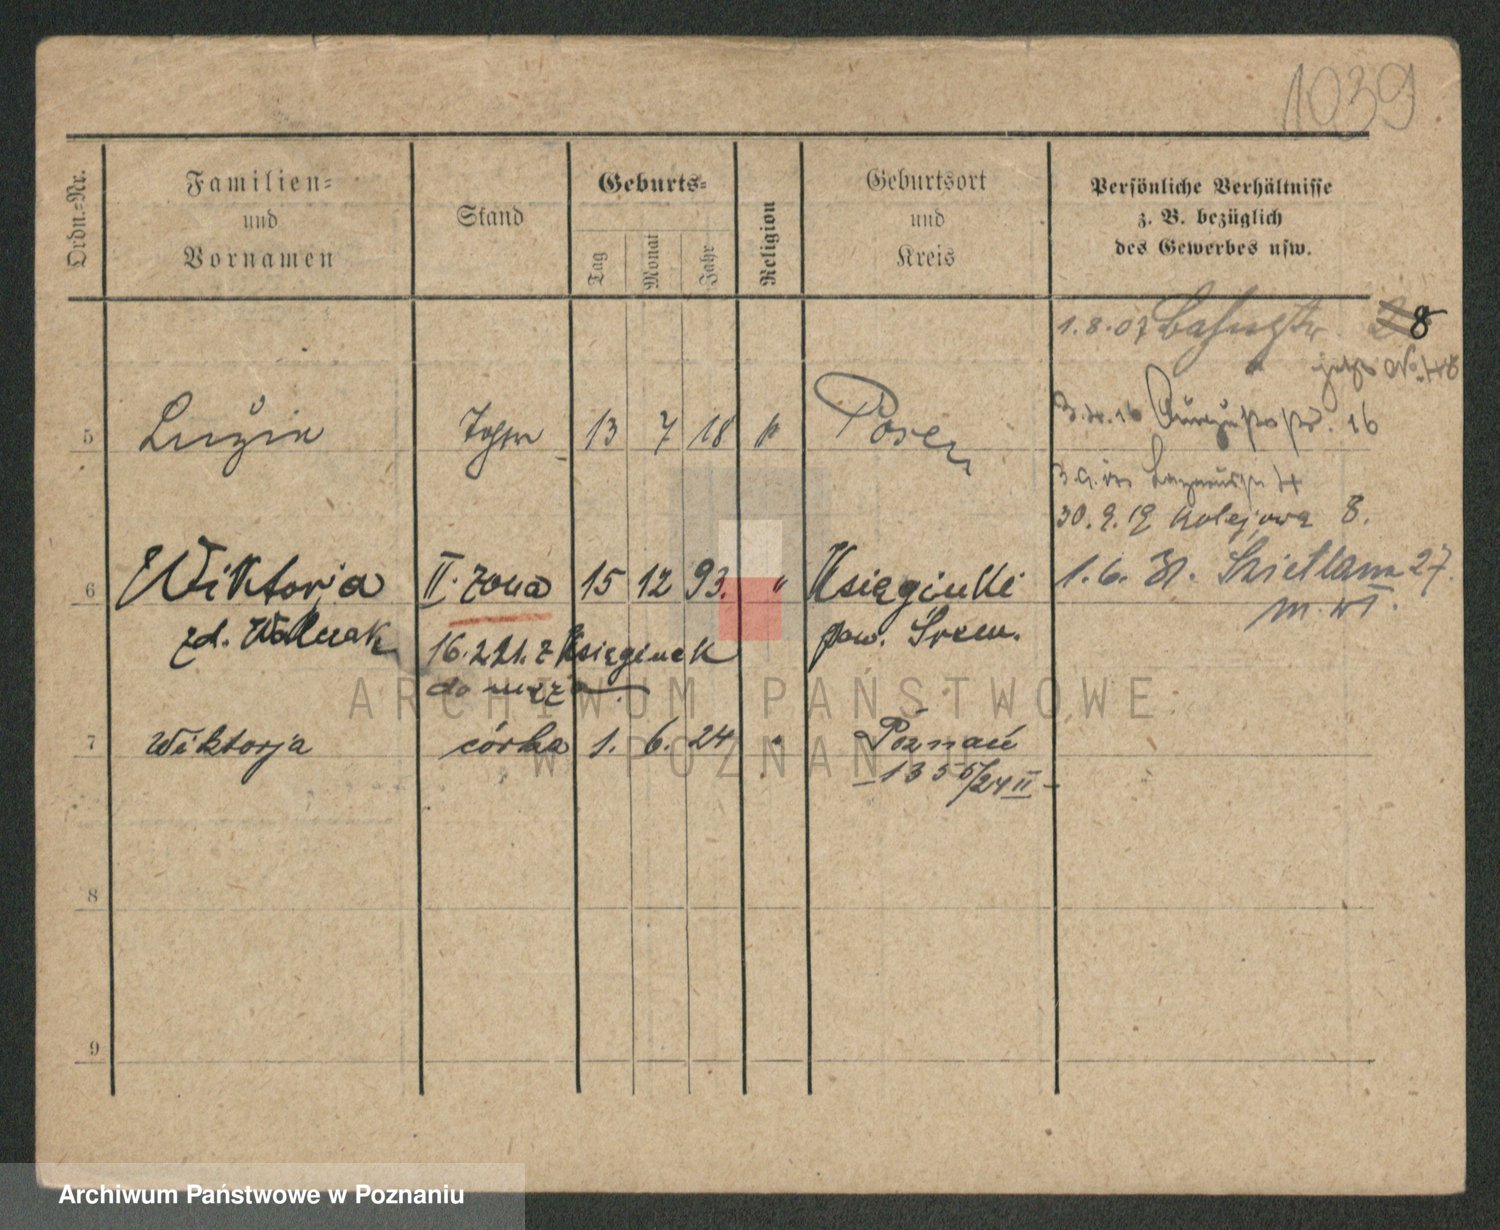 1039
Ordn.-Nr.
Familien-
und
Vornamen
Stand
Geburts-
Tag
Monat
Jahr
Religion
Geburtsort
und
Kreis
Persönliche Verhältnisse
z. B. bezüglich
des Gewerbes usw.
1.8.07 8
5 Luzie 13 7 18 Posen
16
30.9.19 Kolejowa 8.
6 Wiktorja II. żona 15 12 93. " Księginki 1.6. 27.
zd. pow. Śrem.
16.2.21. z Księginek
do męża
7 Wiktorja córka 1. 6. 24 " Poznań
1355/24 II
8
9
ARCHIWUM PAŃSTWOWE
W POZNANIU
Archiwum Państwowe w Poznaniu